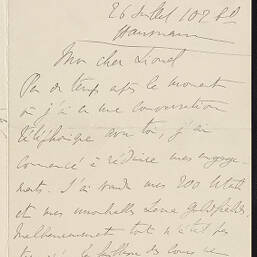 26 Juillet 102 Bd
Haussmann
Mon cher Lionel
Peu de temps après le moment
où j'ai eu une conversation
téléphonique avec toi, j'ai
commencé à réduire mes engage-
ments. J'ai vendu mes 200
et mes Lena Goldfields.
Malheureusement tout n'était pas
la des cours